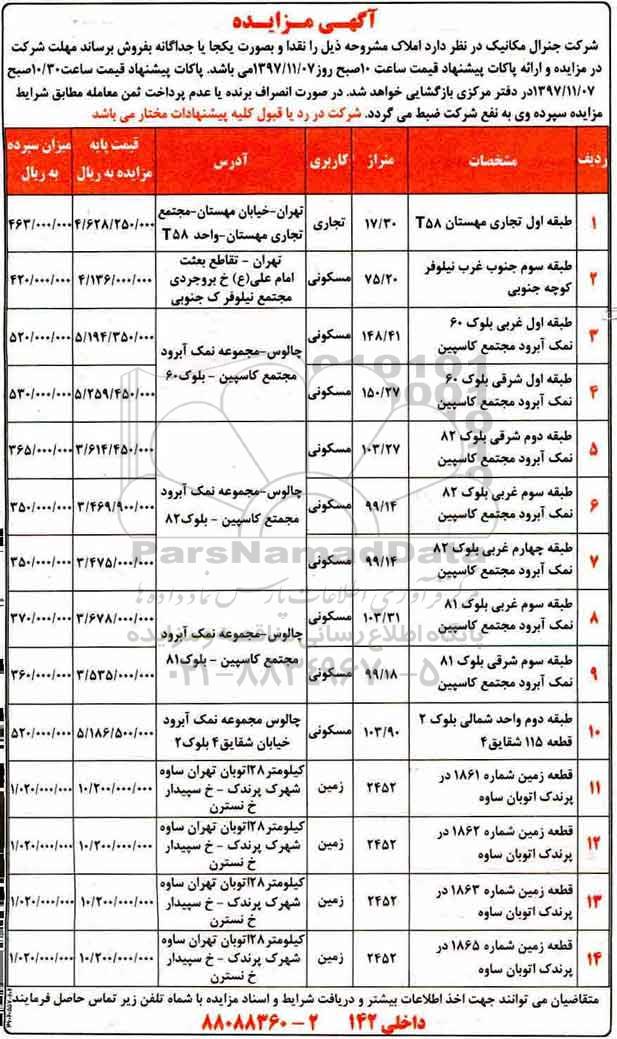 آگهی مزایده
شرکت جنرال مکانیک در نظر دارد املاک مشروحه ذیل را نقدا و بصورت یکجا یا جداگانه بفروش برساند مهلت شرکت
در مزایده و ارائه پاکات پیشنهاد قیمت ساعت ۱۰صبح روز۱۳۹۷/۱۱/۰۷می باشد. پاکات پیشنهاد قیمت ساعت۱۰/۳۰صبح
۱۳۹۷/۱۱/۰۷در دفتر مرکزی بازگشایی خواهد شد. در صورت انصراف برنده یا عدم پرداخت ثمن معامله مطابق شرایط
مزایده سپرده وی به نفع شرکت ضبط می گردد. شرکت در رد یا قبول کلیه پیشنهادات مختار می باشد
ردیف مشخصات متراژ کاربری آدرس قیمت پایه مزایده به ریال میزان سپرده به ریال
۱ طبقه اول تجاری مهستان T۵۸ ۱۷/۳۰ تجاری تهران-خیابان مهستان-مجتمع تجاری مهستان-واحد T۵۸ ۴/۶۲۸/۲۵۰/۰۰۰ ۴۶۳/۰۰۰/۰۰۰
۲ طبقه سوم جنوب غرب نیلوفر کوچه جنوبی ۷۵/۲۰ مسکونی تهران - تقاطع بعثت امام علی(ع) خ بروجردی مجتمع نیلوفر ک جنوبی ۴/۱۳۶/۰۰۰/۰۰۰ ۴۲۰/۰۰۰/۰۰۰
۳ طبقه اول غربی بلوک ۶۰ نمک آبرود مجتمع کاسپین ۱۴۸/۴۱ مسکونی چالوس-مجموعه نمک آبرود مجتمع کاسپین - بلوک۶۰ ۵/۱۹۴/۳۵۰/۰۰۰ ۵۲۰/۰۰۰/۰۰۰
۴ طبقه اول شرقی بلوک ۶۰ نمک آبرود مجتمع کاسپین ۱۵۰/۲۷ مسکونی ۵/۲۵۹/۴۵۰/۰۰۰ ۵۳۰/۰۰۰/۰۰۰
۵ طبقه دوم شرقی بلوک ۸۲ نمک آبرود مجتمع کاسپین ۱۰۳/۲۷ مسکونی ۳/۶۱۴/۴۵۰/۰۰۰ ۳۶۵/۰۰۰/۰۰۰
۶ طبقه سوم غربی بلوک ۸۲ نمک آبرود مجتمع کاسپین ۹۹/۱۴ مسکونی چالوس-مجموعه نمک آبرود مجتمع کاسپین - بلوک۸۲ ۳/۴۶۹/۹۰۰/۰۰۰ ۳۵۰/۰۰۰/۰۰۰
۷ طبقه چهارم غربی بلوک ۸۲ نمک آبرود مجتمع کاسپین ۹۹/۱۴ مسکونی ۳/۴۷۵/۰۰۰/۰۰۰ ۳۵۰/۰۰۰/۰۰۰
۸ طبقه سوم غربی بلوک ۸۱ نمک آبرود مجتمع کاسپین ۱۰۳/۳۱ مسکونی چالوس-مجموعه نمک آبرود مجتمع کاسپین - بلوک۸۱ ۳/۶۷۸/۰۰۰/۰۰۰ ۳۷۰/۰۰۰/۰۰۰
۹ طبقه سوم شرقی بلوک ۸۱ نمک آبرود مجتمع کاسپین ۹۹/۱۸ مسکونی ۳/۵۳۵/۰۰۰/۰۰۰ ۳۶۰/۰۰۰/۰۰۰
۱۰ طبقه دوم واحد شمالی بلوک ۲ قطعه ۱۱۵ شقایق۴ ۱۰۳/۹۰ مسکونی چالوس مجموعه نمک آبرود خیابان شقایق۴ بلوک۲ ۵/۱۸۶/۵۰۰/۰۰۰ ۵۲۰/۰۰۰/۰۰۰
۱۱ قطعه زمین شماره ۱۸۶۱ در پرندک اتوبان ساوه ۲۴۵۲ زمین کیلومتر۲۸اتوبان تهران ساوه شهرک پرندک - خ سپیدار خ نسترن ۱۰/۲۰۰/۰۰۰/۰۰۰ ۱/۰۲۰/۰۰۰/۰۰۰
۱۲ قطعه زمین شماره ۱۸۶۲ در پرندک اتوبان ساوه ۲۴۵۲ زمین کیلومتر۲۸اتوبان تهران ساوه شهرک پرندک - خ سپیدار خ نسترن ۱۰/۲۰۰/۰۰۰/۰۰۰ ۱/۰۲۰/۰۰۰/۰۰۰
۱۳ قطعه زمین شماره ۱۸۶۳ در پرندک اتوبان ساوه ۲۴۵۲ زمین کیلومتر۲۸اتوبان تهران ساوه شهرک پرندک - خ سپیدار خ نسترن ۱۰/۲۰۰/۰۰۰/۰۰۰ ۱/۰۲۰/۰۰۰/۰۰۰
۱۴ قطعه زمین شماره ۱۸۶۵ در پرندک اتوبان ساوه ۲۴۵۲ زمین کیلومتر۲۸اتوبان تهران ساوه شهرک پرندک - خ سپیدار خ نسترن ۱۰/۲۰۰/۰۰۰/۰۰۰ ۱/۰۲۰/۰۰۰/۰۰۰
متقاضیان می توانند جهت اخذ اطلاعات بیشتر و دریافت شرایط و اسناد مزایده با شماه تلفن زیر تماس حاصل فرمایند.
۸۸۰۸۸۳۶۰ - ۲ داخلی ۱۴۲
ParsNamadData
مرکز فرآوری اطلاعات پارس نماد داده ها
پایگاه اطلاع رسانی مناقصه و مزایده
۰۲۱-۸۸۳۴۹۶۷۰-۵